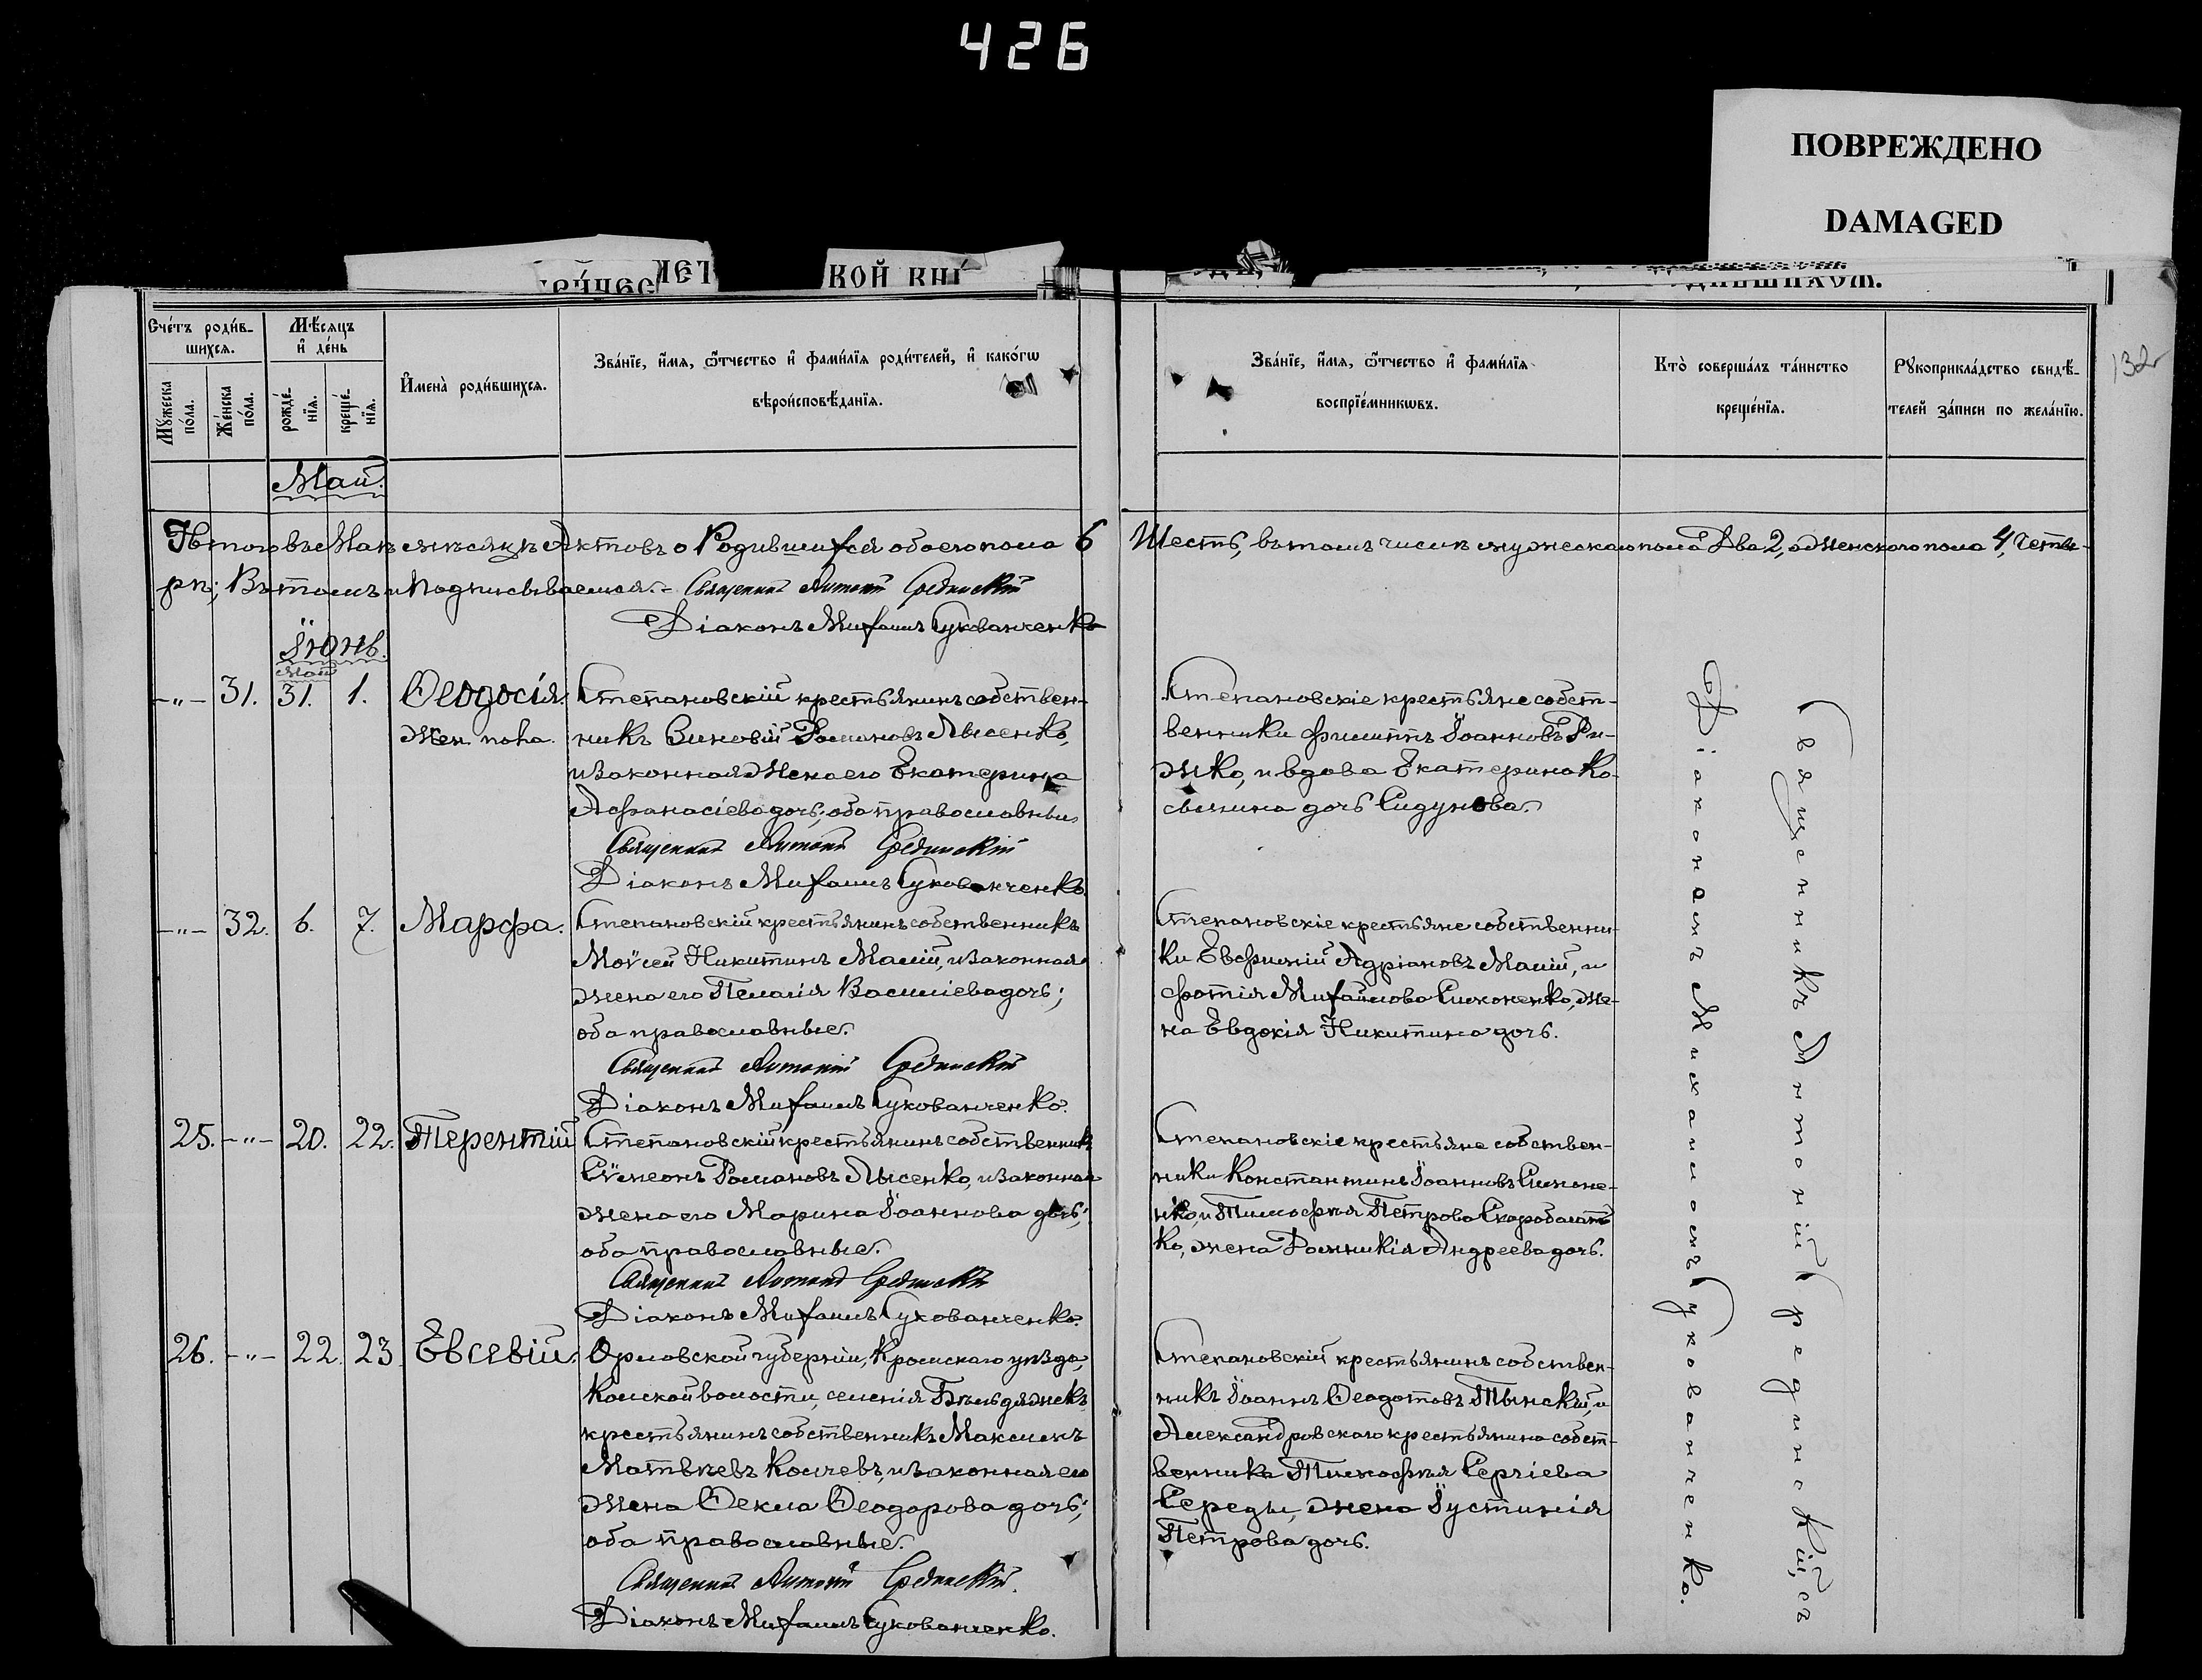 426
ПОВРЕЖДЕНО
DAMAGED
КОЙ КНИ
132
Сче́тъ роди́в-
шихся.
Мѣ́сяцъ
и҆ де́нь
Му́жеска
по́ла.
Же́нска
по́ла.
рожде́-
нїя.
креще́-
нїя.
И҆мена̀ роди́вшихся.
Зва́нїе, и҆́мя, ѻ҆́тчество и҆ фами́лїя роди́телей, и҆ како́гѡ
вѣроисповѣ́данїя.
Зва́нїе, и҆́мя, ѻ҆́тчество и҆ фами́лїя
воспрїе́мникѡвъ.
Кто̀ соверша́лъ та́инство
креще́нїя.
Рꙋкоприкла́дство свидѣ́-
телей за́писи по жела́нїю.
Май.
Итого въ Маѣ мѣсяцѣ Актовъ о Родившихся обоего пола 6 Шесть, въ томъ числѣ мужескаго пола Два 2, а Женского пола 4, Четы-
рѣ; Въ томъ и Подписываемся. – Священникъ Антоній Срединскій
Діаконъ Михаилъ Суковаченко
Іюнь.
Май
-"- 31. 31. 1. Ѳеодосія. Степановскій крестьянинъ собствен-
Жен. пола. никъ Зиновій Романовъ Лысенко,
и законная жена его Екатерина
Афанасіева дочь; оба православные
Священникъ Антоній Срединскій
Діаконъ Михаилъ Суковаченко.
Степановскіе крестьяне собст-
венники Филиппъ Іоанновъ Ри-
жко, и вдова Екатерина Ко-
сьмина дочь Сидунова.
-"- 32. 6. 7. Марфа. Степановскій крестьянинъ собственникъ
Моѵсей Никитинъ Малій, и законная
жена его Пелагія Василіева дочь;
оба православные.
Священникъ Антоній Срединскій
Діаконъ Михаилъ Суковаченко.
Степановскіе крестьяне собственни-
ки Евфимій Адріановъ Малій, и
Фотія Михайлова Симоненко, же-
на Евдокія Никитина дочь.
25. -"- 20. 22. Терентій Степановскій крестьянинъ собственникъ
Сѵмеонъ Романовъ Лысенко, и законная
жена его Марина Іоаннова дочь;
оба православные.
Священникъ Антоній Срединскій
Діаконъ Михаилъ Суковаченко.
Степановскіе крестьяне собствен-
ники Константинъ Іоанновъ Симоне-
нко, и Тимофѣя Петрова
ко, жена Домникія Андреева дочь.
26. -"- 22. 23 Евсевій. Орловской губерніи, Кромскаго уѣзда,
волости, селенія
крестьянинъ собственникъ Максимъ
Матвѣевъ и законная его
жена Ѳекла Ѳеодорова дочь;
оба православные.
Священникъ Антоній Срединскій.
Діаконъ Михаилъ Суковаченко.
Степановскій крестьянинъ собствен-
никъ Іоаннъ Ѳеодотовъ Тынскій, и
Александровскаго крестьянина собст-
венника Тимофѣя Сергіева
Середы, жена Іустинія
Петрова дочь.
Священникъ Антоній Срединскій, съ
Діакономъ Михаиломъ Суковаченко.